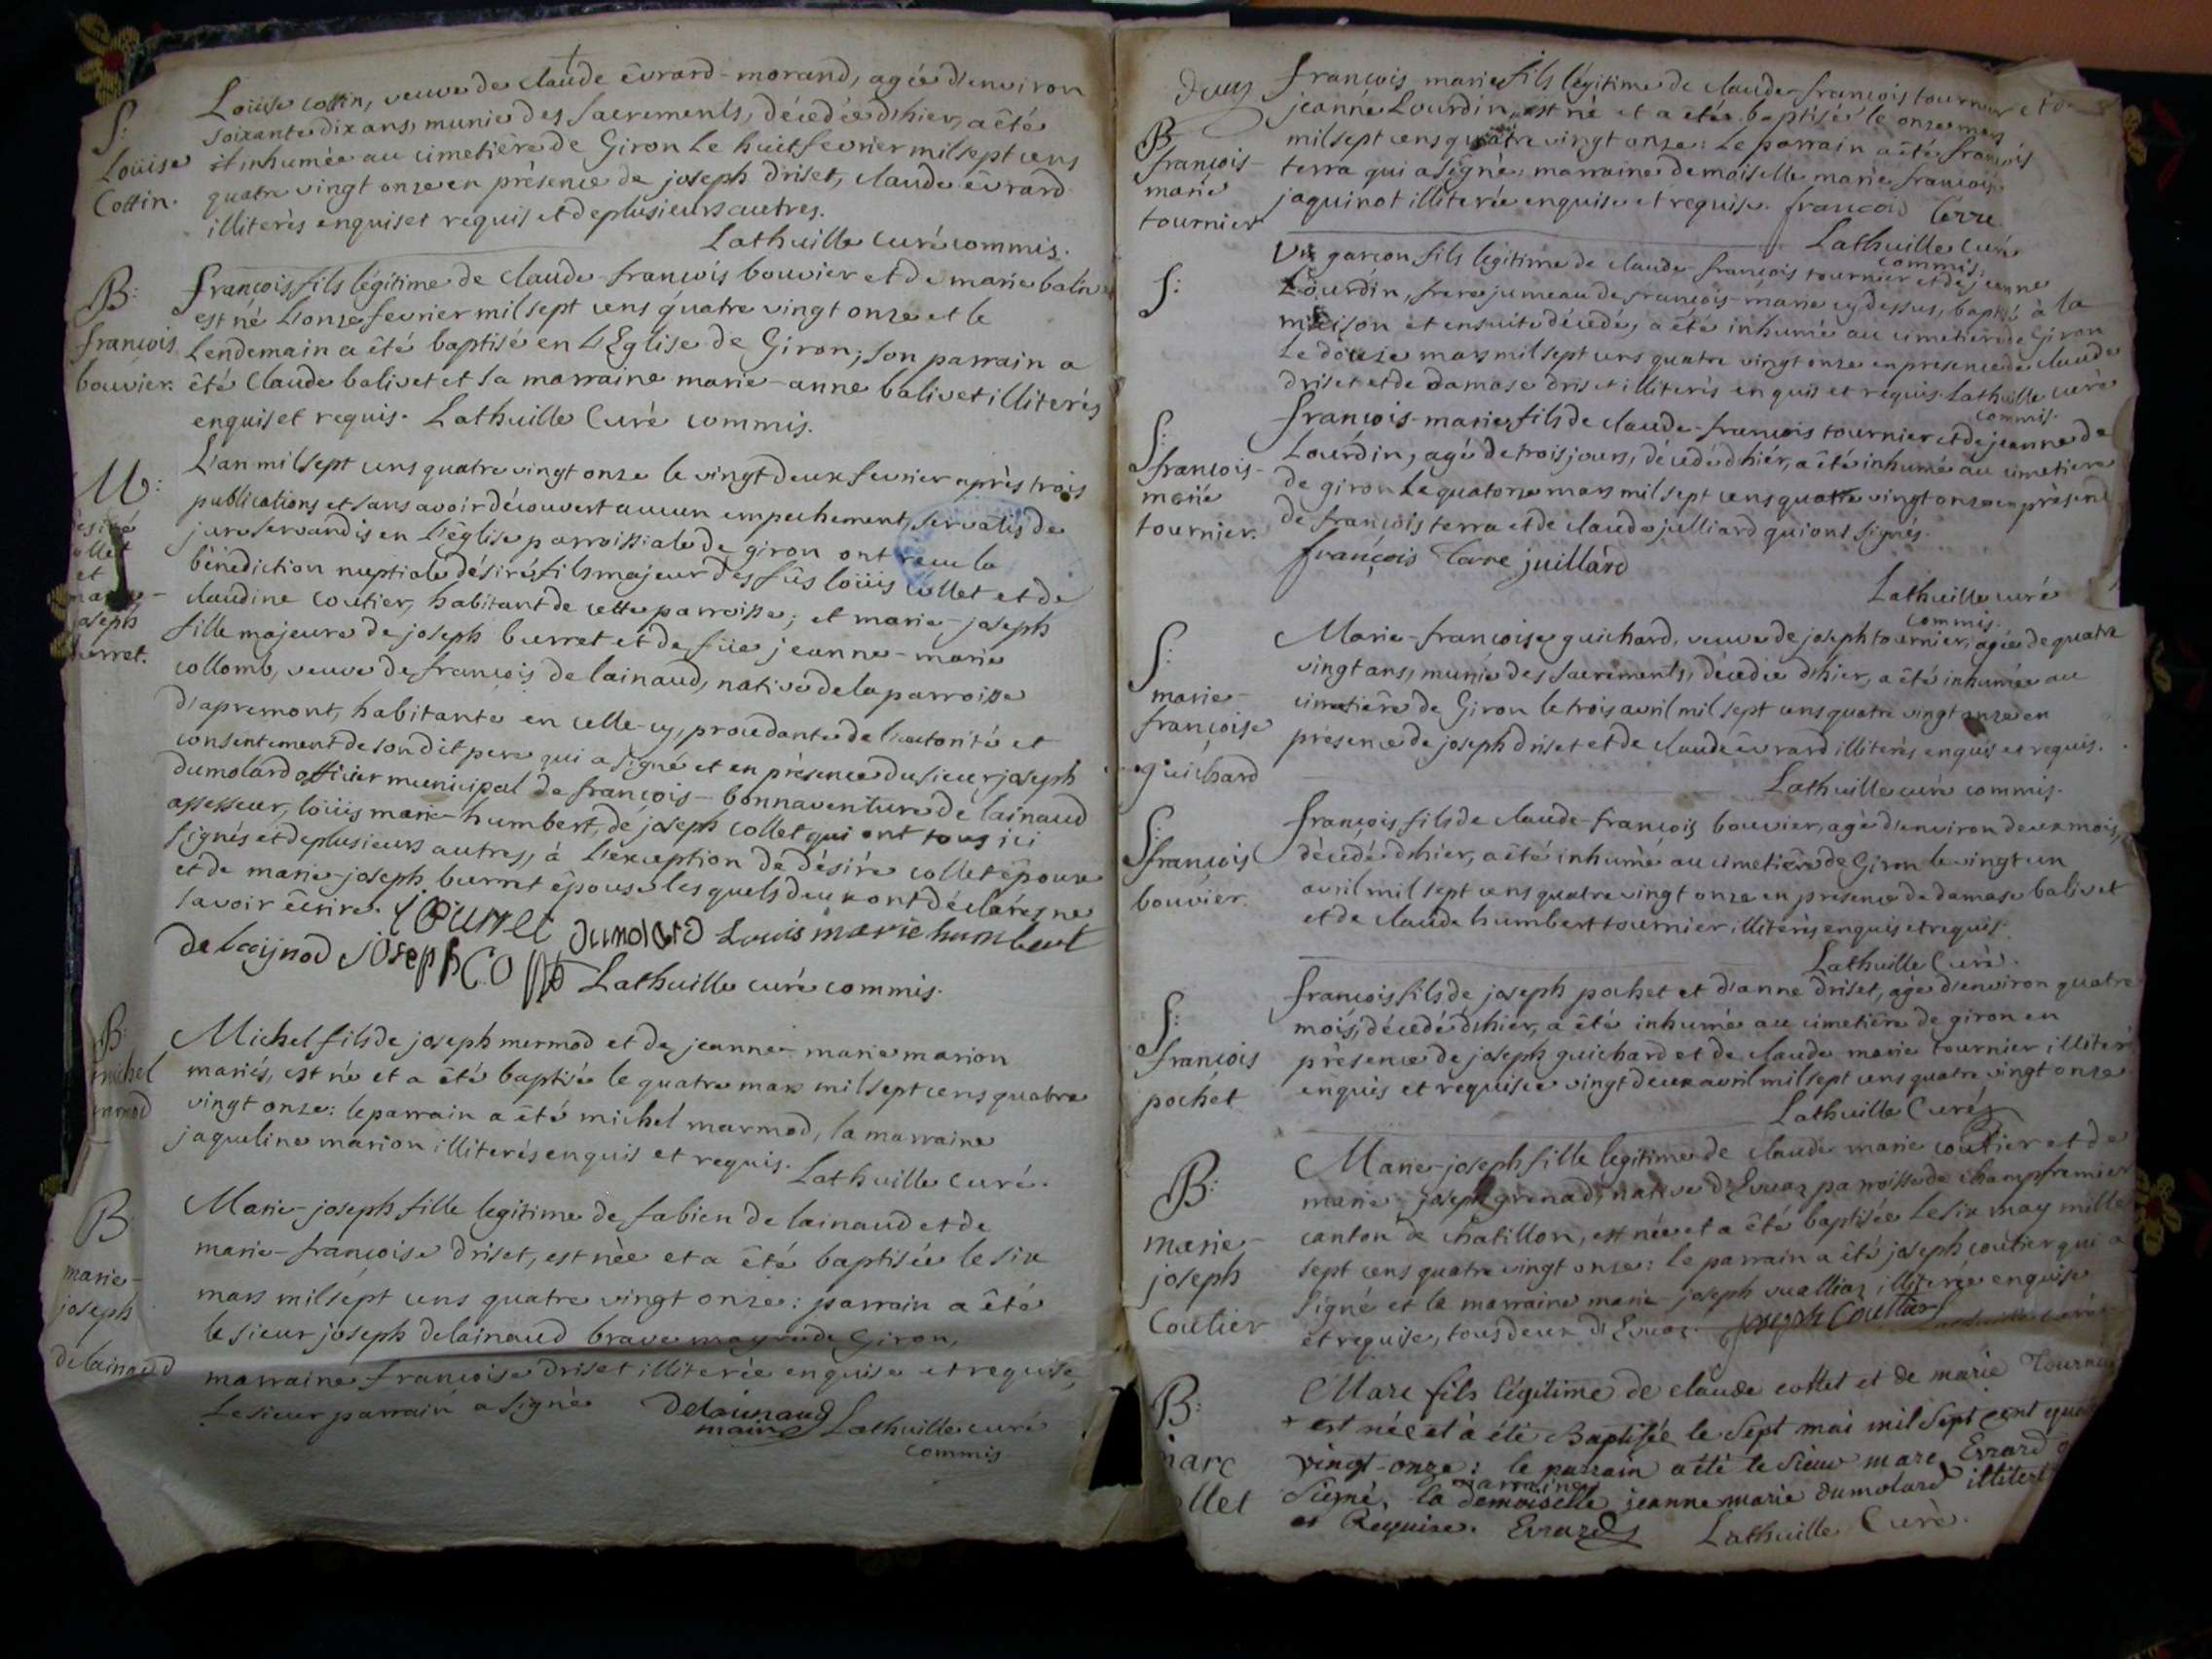 S:
Loüise
Cottin.
Loüise cottin, veuve de claude êvrard-morand, agée d'environ
soixante dix ans, munie des sacrements, décédée d'hier, a été
et inhumée au cimetière de Giron Le huit fevrier mil sept cens
quatre vingt onze en présence de joseph driset, claude êvrard
illiterés enquis et requis et de plusieurs autres.
Lathuille curé commis.
B:
françois
bouvier.
françois, fils légitime de claude-françois bouvier et de marie balivet
est né L'onze fevrier mil sept cens quatre vingt onze et le
Lendemain a été baptisé en L'Eglise de Giron; son parrain a
été claude balivet et sa marraine marie-anne balivet illiterés
enquis et requis. Lathuille Curé commis.
M:
et
joseph
burret.
L'an mil sept cens quatre vingt onze le vingt deux fevrier après trois
publications et sans avoir découvert aucun empechement, servatis de
jure servandis en L'église parroissiale de giron ont reçu la
bénédiction nuptiale désiré, fils majeur des fûs loüis collet et de
claudine coutier, habitant de cette parroisse; et marie-joseph
fille majeure de joseph burret et de füe jeanne-marie
collomb, veuve de françois de lainaud, native de la parroisse
d'apremont, habitante en celle-cy, procedante de l'autorité et
consentement de son dit pere qui a signé et en présence du sieur joseph
dumolard officier municipal de françois-bonnaventure de lainaud
assesseur, loüis marie-humbert, de joseph collet qui ont tous ici
signés et de plusieurs autres, à l'exception de désiré collet époux
et de marie-joseph burret épouse lesquels deux ont déclarés ne
savoir écrire. dumolard Louis marie humbert
delaijnod joseph Collet Lathuille curé commis.
B:
michel
mermod
Michel fils de joseph mermod et de jeanne-marie marion
mariés, est né et a été baptisé le quatre mars mil sept cens quatre
vingt onze: le parrain a été michel marmod, la marraine
jaqueline marion illiterés enquis et requis. Lathuille Curé.
B:
marie-
joseph
delainaud
Marie-joseph fille legitime de fabien de lainaud et de
marie-françoise driset, est née et a été baptisée le six
mars mil sept cens quatre vingt onze: parrain a été
le sieur joseph delainaud brave mayre de Giron,
marraine françoise driset illiterée enquise et requise,
Le sieur parrain a signé Delainaud Lathuille curé
maire commis
B
françois-
marie
tournier
françois-marie, fils légitime de claude-françois tournier et de
jeanne Lourdin, est né et a été baptisé le onze mars
mil sept cens quatre vingt onze: Le parrain a été françois
terra qui a signé, marraine demoiselle marie françoise
jaquinot illiterée enquise et requise. françois terre
Lathuille curé
commis.
S:
Un garçon fils légitime de claude-françois tournier et de jeanne
Lourdin, frere jumeau de françois-marie cy dessus, baptisé à la
maison et ensuite décédé, a été inhumé au cimetière de Giron
Le douze mars mil sept cens quatre vingt onze en presence de claude
driset et de damase driset illiterés enquis et requis. Lathuille curé
commis.
S:
françois-
marie
tournier.
françois-marie, fils de claude-françois tournier et de jeanne de
Lourdin, agé de trois jours, décédé d'hier, a été inhumé au cimetiere
de giron Le quatorze mars mil sept cens quatre vingt onze en présence
de françois terra et de claude julliard qui ont signés.
françois terre juillard
Lathuille curé
commis.
S:
marie-
françoise
guichard
Marie-françoise guichard, veuve de joseph tournier, agée de quatre
vingt ans, munie des sacrements, décédée d'hier, a été inhumée au
cimetière de Giron le trois avril mil sept cens quatre vingt onze en
presence de joseph driset et de claude êvrard illiterés enquis et requis.
Lathuille curé commis.
S:
françois
bouvier.
françois, fils de claude-françois bouvier, agé d'environ deux mois,
décédé d'hier, a été inhumé au cimetière de Giron le vingt un
avril mil sept cens quatre vingt onze en presence de damase balivet
et de claude humbert tournier illiterés enquis et requis.
Lathuille Curé.
S:
françois
pochet
françois fils de joseph pochet et d'anne driset, agé d'environ quatre
mois, décédé d'hier, a été inhumé au cimetière de giron en
présence de joseph guichard et de claude marie tournier illiterés
enquis et requis ce vingt deux avril mil sept cens quatre vingt onze
Lathuille Curé
B:
marie-
joseph
Coutier
Marie-joseph fille legitime de claude marie coutier et de
marie-joseph grenad, native d'Evuaz parroisse de champfremier
canton de chatillon, est née et a été baptisée Le six may mille
sept cens quatre vingt onze: le parrain a été joseph coutier qui a
signé et la marraine marie-joseph vualliaz illiterée enquise
et requise, tous deux d'Evuaz. joseph Coutier
B:
marc
collet
Marc fils légitime de claude collet et de marie Tournier
+ est né et à été Baptisée le sept mai mil sept cent quatre
vingt-onze: le parrain a été le sieur marc Evrard
marraine
signé, la demoiselle jeanne marie dumolard illiteré
et Requise. Evrard Lathuille Curé.